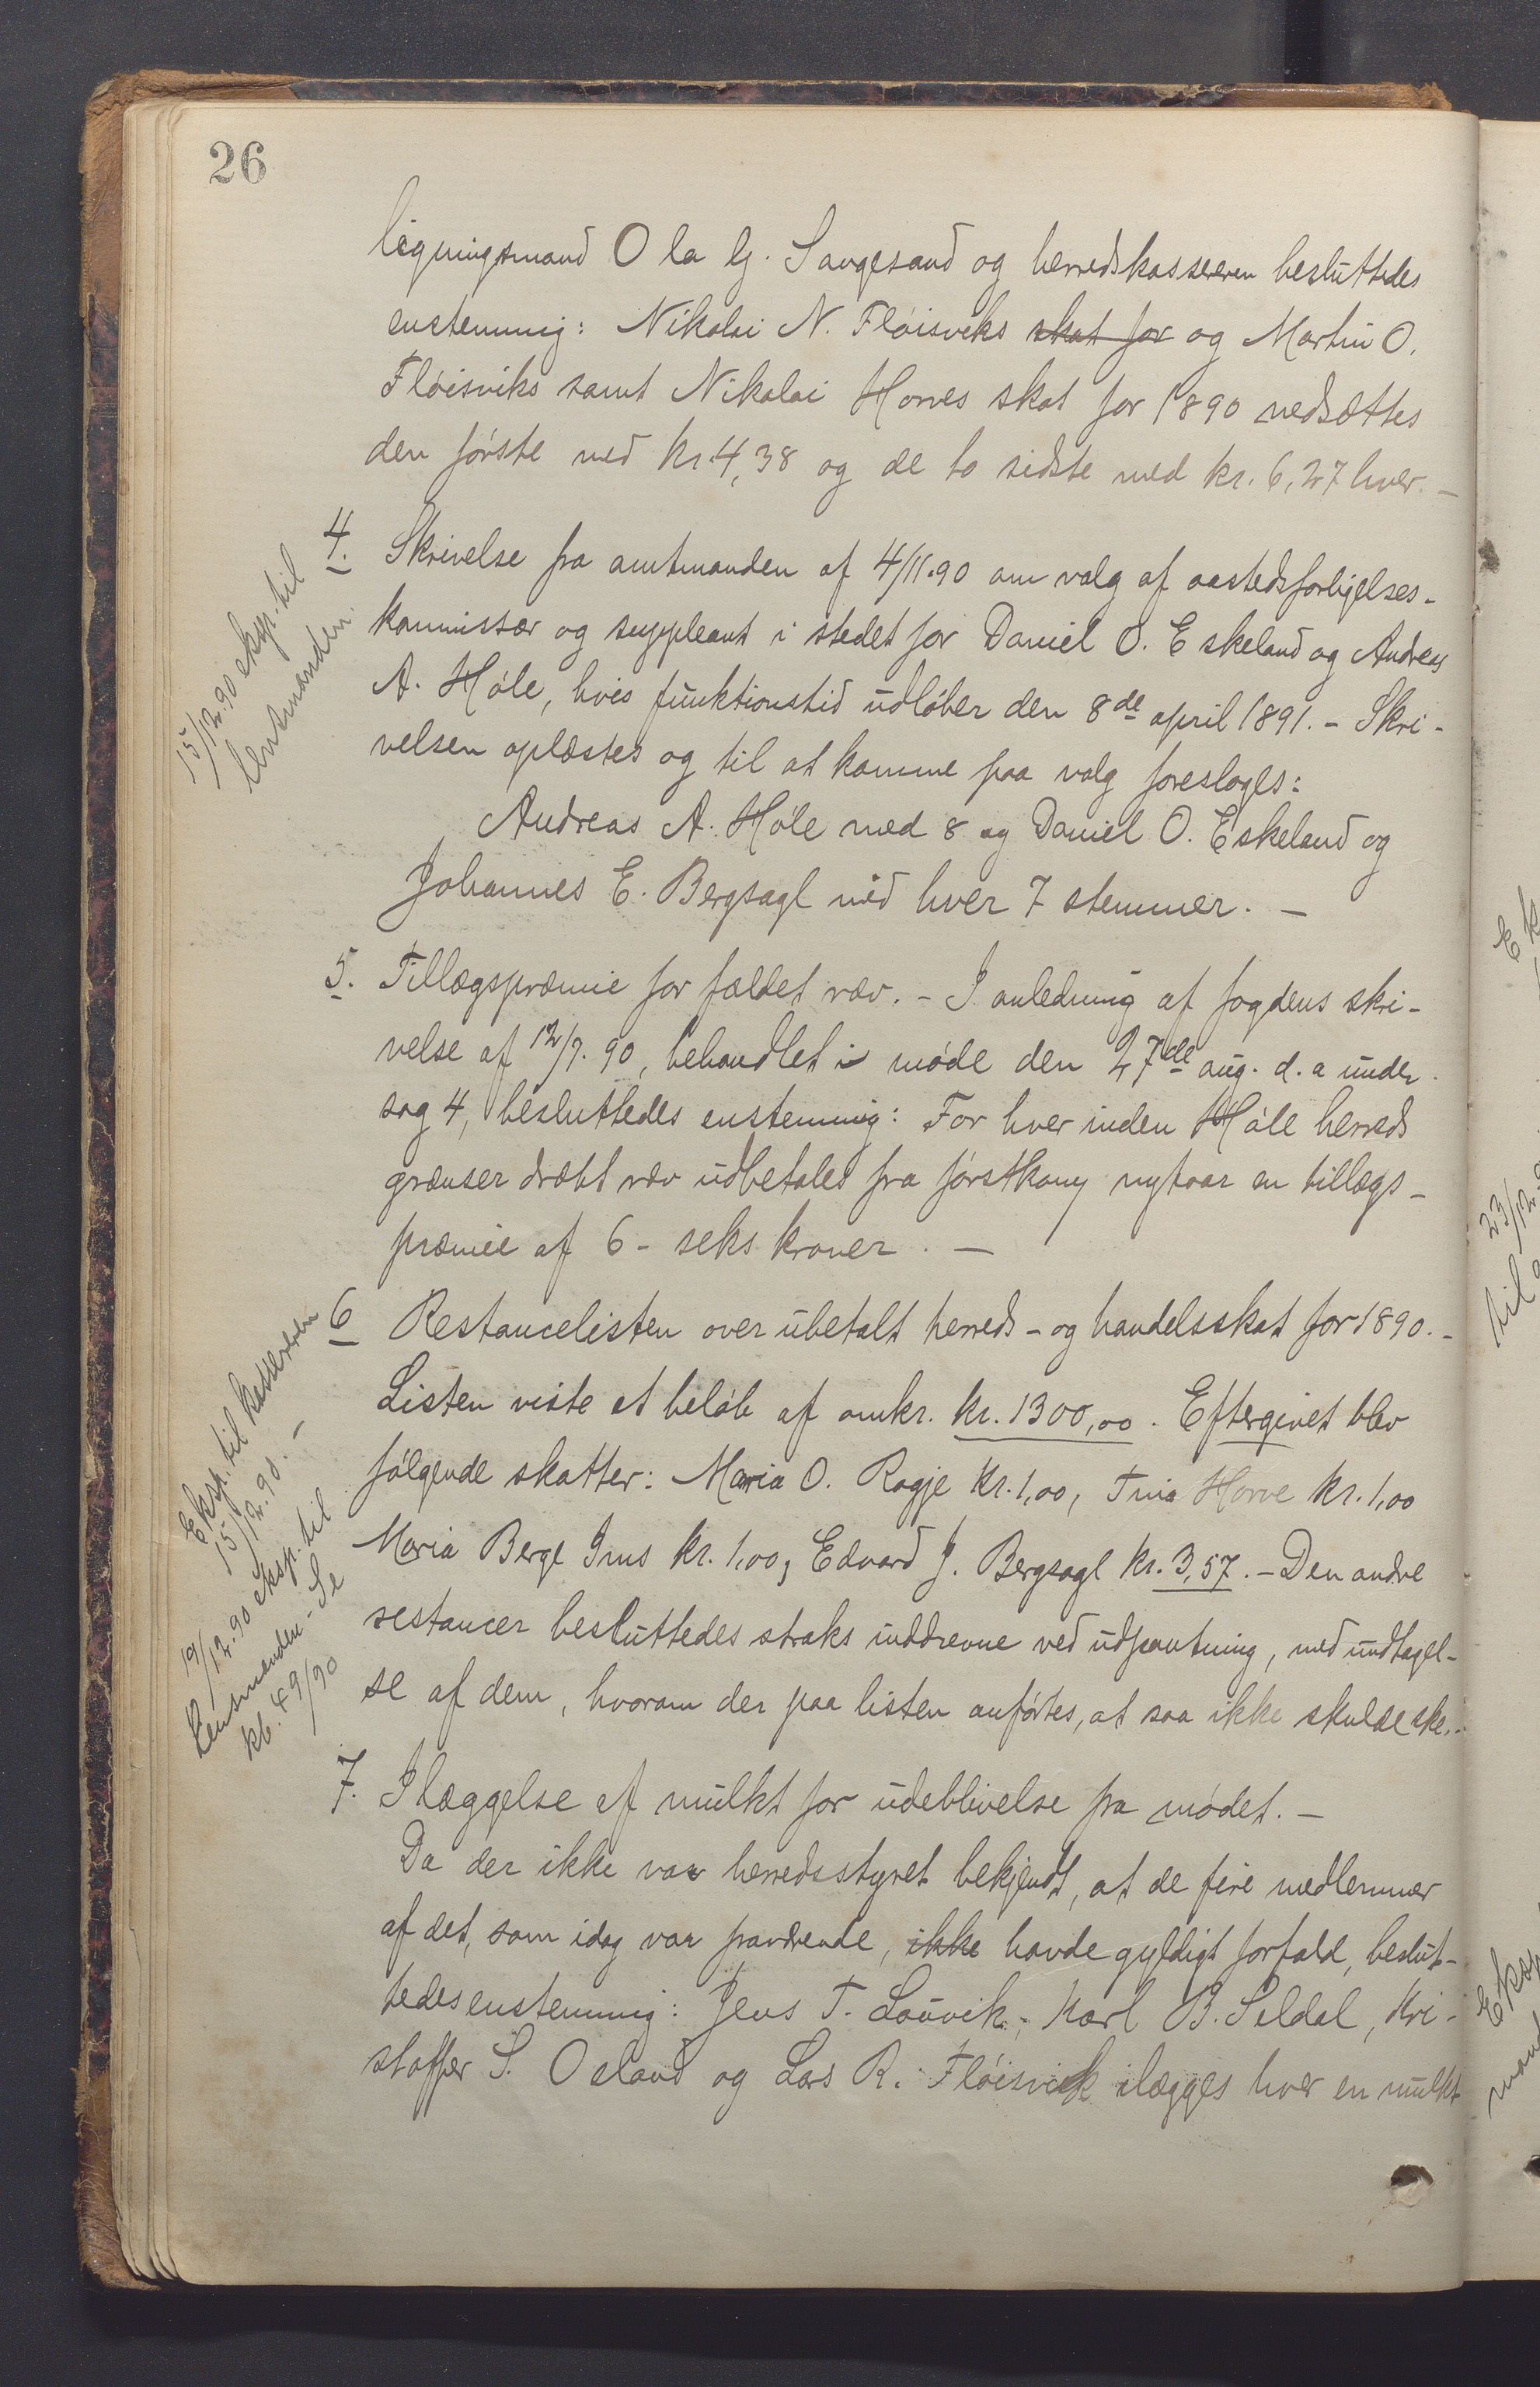 26
ligningsmand Ola G. Sangesand og herredskassereren besluttedes
enstemmig: Nikolai N. Fløisviks skat for og Martin O.
Fløisviks samt Nikolai Horves skat for 1890 nedsættes
den første med kr. 4,38 og de to sidste med kr. 6,27 hver. –
15/12.90 eksp. til
lensmanden.
4. Skrivelse fra amtmanden af 4/11.90 om valg af aastedsforligelses-
kommissær og suppleant i stedet for Daniel O. Eskeland og Andreas
A. Høle, hvis funktionstid udløber den 8de april 1891. – Skri-
velsen oplæstes og til at komme paa valg foresloges:
Andreas A. Høle med 8 og Daniel O. Eskeland og
Johannes E. Bergsagl med hver 7 stemmer. –
5. Tillægspræmie for fældet ræv. – I anledning af fogdens skri-
velse af 12/7.90, behandlet i møde den 27de aug. d.a under
sag 4, besluttedes enstemmig: For hver inden Høle herreds
grænser dræbt ræv udbetales fra førstkom. nytaar en tillægs-
præmie af 6 – seks kroner. –
Eksp. til kassereren
15/12.90. –
19/12.90 eksp. til
Lensmanden – Se
kb. 49/90
6 Restancelisten over ubetalt herreds- og handelsskat for 1890. –
Listen viste et beløb af omkr. kr. 1300,00. Eftergivet blev
følgende skatter: Maria O. Ragje kr. 1,00, Tina Horve kr. 1,00
Maria Berge Ims kr. 1,00, Edvard J. Bergsagl kr. 3,57. – Den andre
restancer besluttedes straks inddrevne ved udpantning, med undtagel-
se af dem, hvorom der paa listen anførtes, at saa ikke skulde ske. –
7. Ilæggelse af mulkt for udeblivelse fra mødet. –
Da der ikke var herredsstyret bekjendt, at de fire medlemmer
af det, som idag var fraværende, ikke havde gyldigt forfald, beslut-
tedes enstemmig: Jens T. Lauvik, Karl B. Seldal, Kri-
stoffer S. Oaland og Lars R. Fløisvik ilægges hver en mulkt